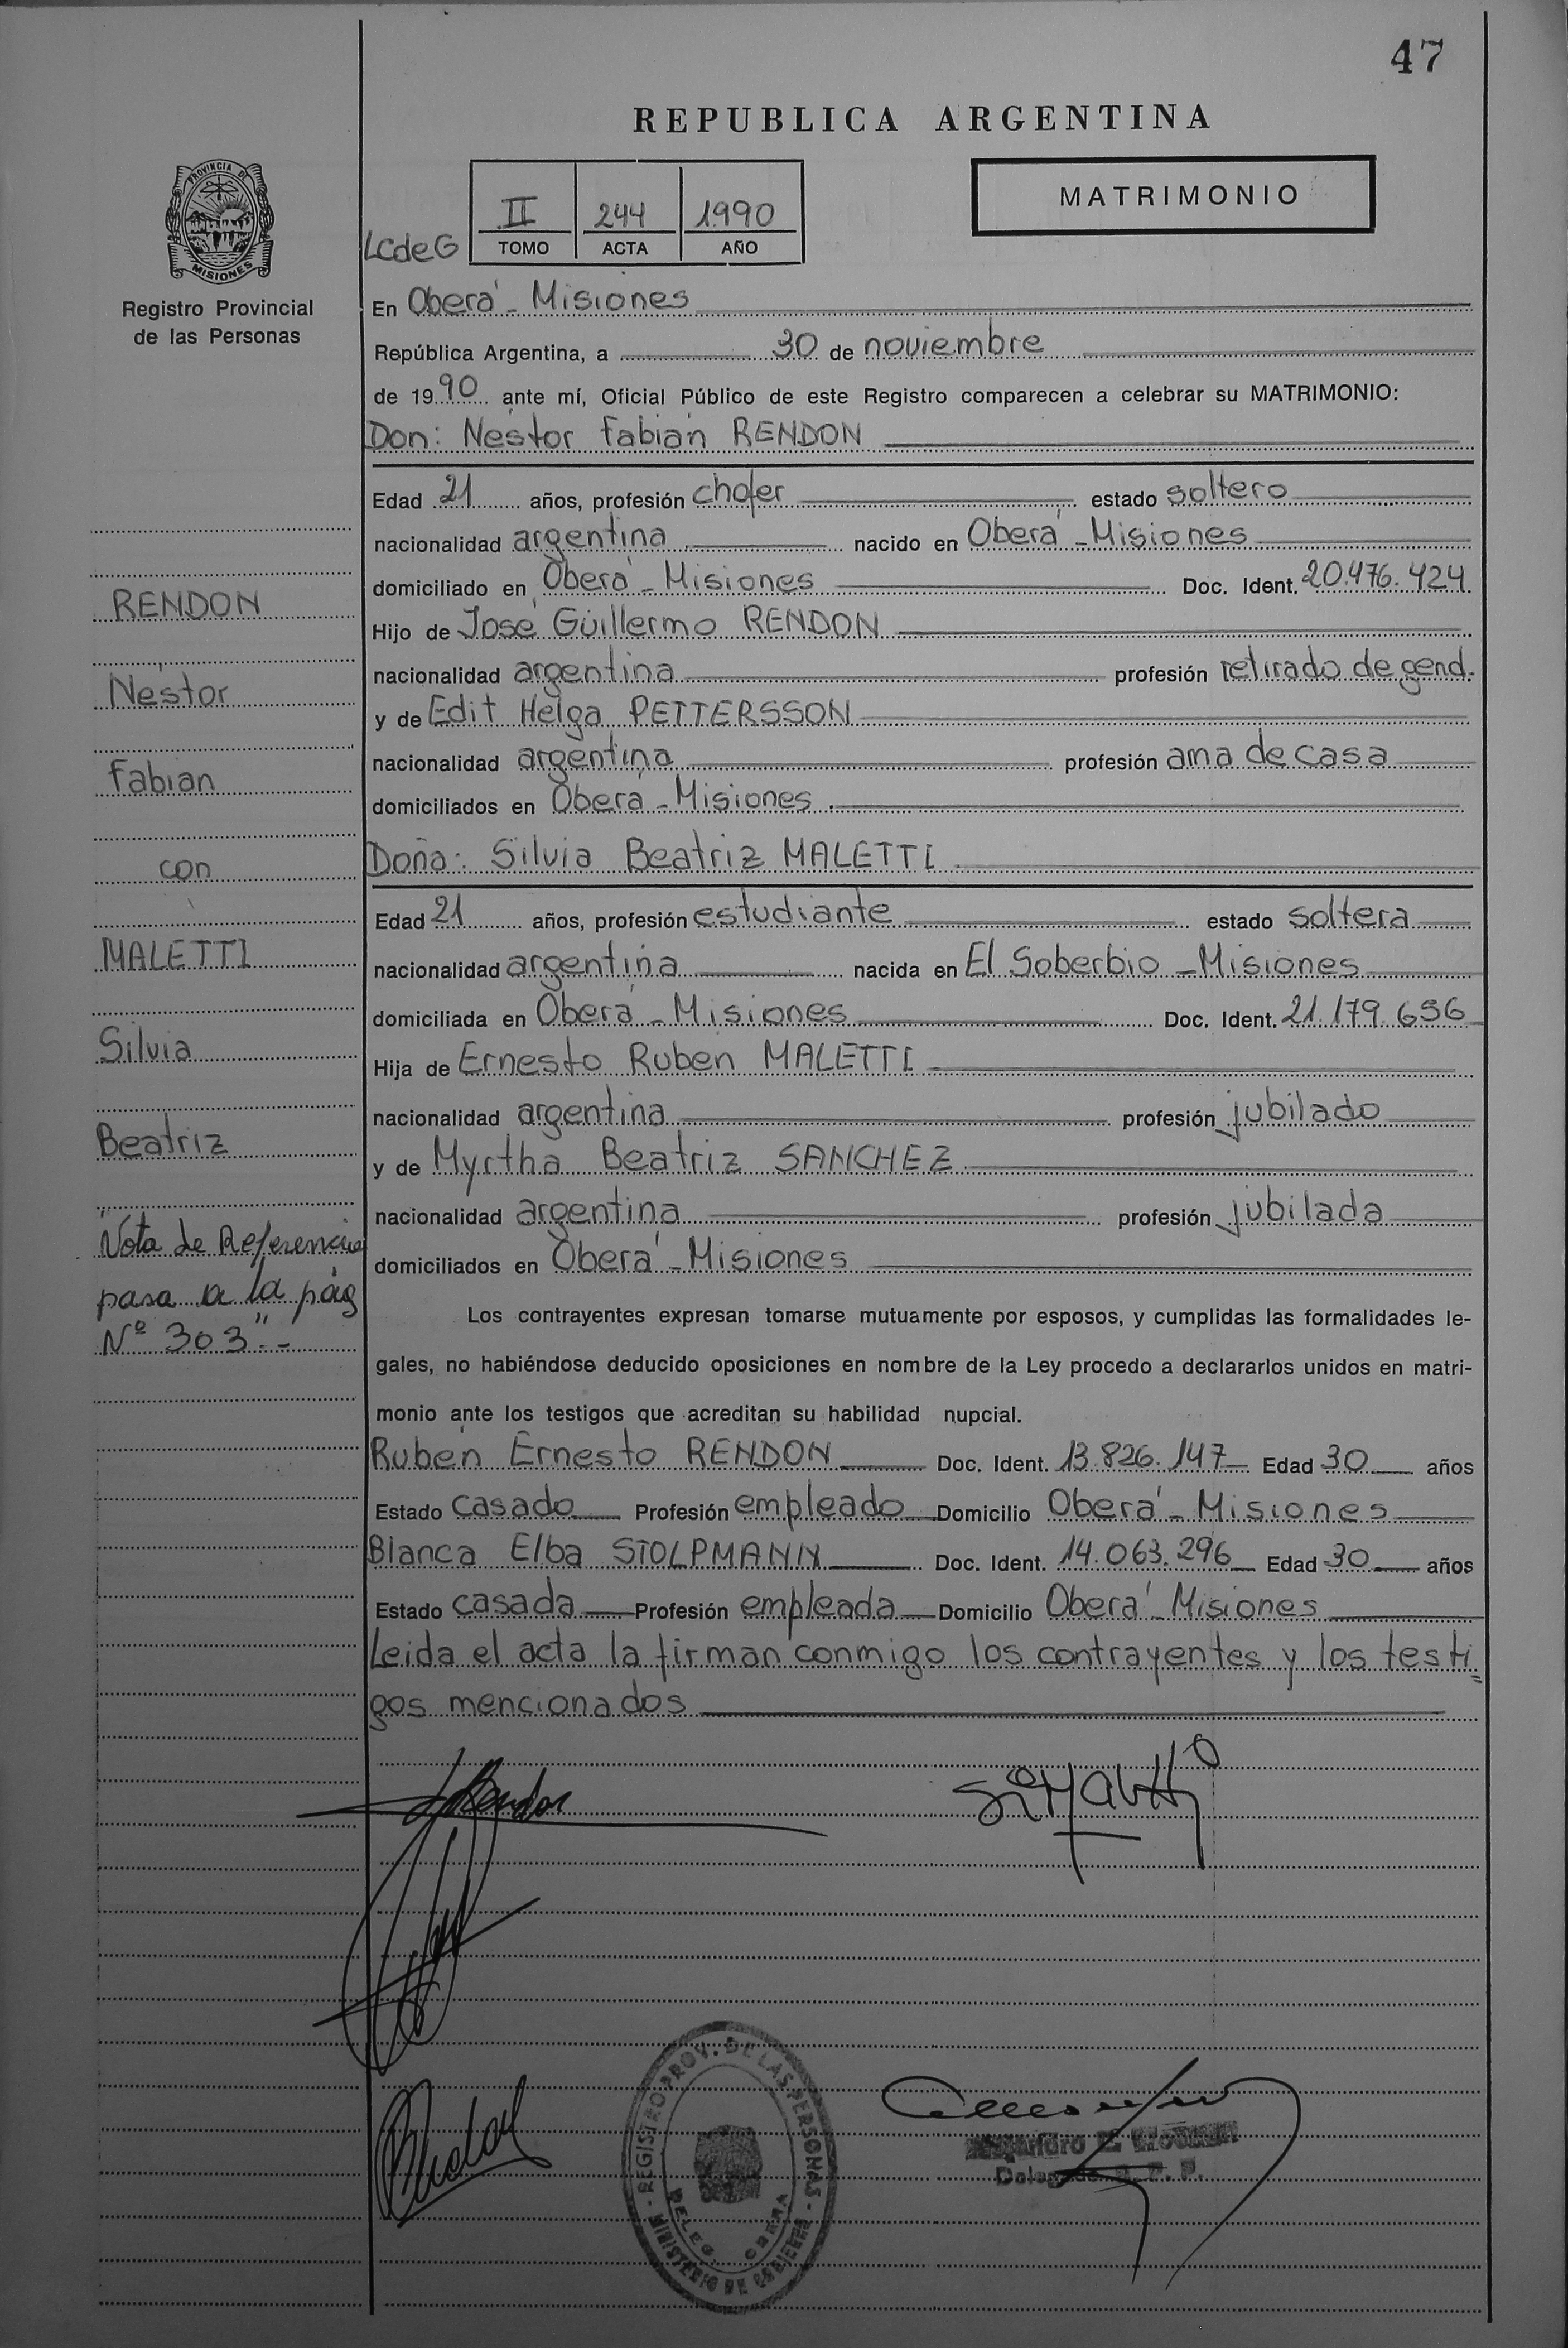 47
REPUBLICA ARGENTINA
PROVINCIA DE
MISIONES
Registro Provincial
de las Personas
LCdeG
II 244 1990
TOMO ACTA AÑO
MATRIMONIO
En Oberá - Misiones
República Argentina, a 30 de noviembre
de 1990 ante mí, Oficial Público de este Registro comparecen a celebrar su MATRIMONIO:
Don: Néstor Fabián RENDON
Edad 21 años, profesión chofer estado soltero
nacionalidad argentina nacido en Oberá - Misiones
domiciliado en Oberá - Misiones Doc. Ident. 20.476.424
Hijo de José Guillermo RENDON
nacionalidad argentina profesión retirado de gend.
y de Edit Helga PETTERSSON
nacionalidad argentina profesión ama de casa
domiciliados en Oberá - Misiones
Doña: Silvia Beatriz MALETTI
Edad 21 años, profesión estudiante estado soltera
nacionalidad argentina nacida en El Soberbio - Misiones
domiciliada en Oberá - Misiones Doc. Ident. 21.179.656
Hija de Ernesto Ruben MALETTI
nacionalidad argentina profesión jubilado
y de Myrtha Beatriz SANCHEZ
nacionalidad argentina profesión jubilada
domiciliados en Oberá - Misiones
Los contrayentes expresan tomarse mutuamente por esposos, y cumplidas las formalidades le-
gales, no habiéndose deducido oposiciones en nombre de la Ley procedo a declararlos unidos en matri-
monio ante los testigos que acreditan su habilidad nupcial.
Rubén Ernesto RENDON Doc. Ident. 13.826.147 Edad 30 años
Estado casado Profesión empleado Domicilio Oberá - Misiones
Blanca Elba STOLPMANN Doc. Ident. 14.063.296 Edad 30 años
Estado casada Profesión empleada Domicilio Oberá - Misiones
Leida el acta la firman conmigo los contrayentes y los testi=
gos mencionados
RENDON
Néstor
Fabian
con
MALETTI
Silvia
Beatriz
"Nota de Referencia
pasa a la pág
Nº 303".-
REGISTRO PROV. DE LAS PERSONAS
MINISTERIO DE GOBIERNO
DELEG. OBERA